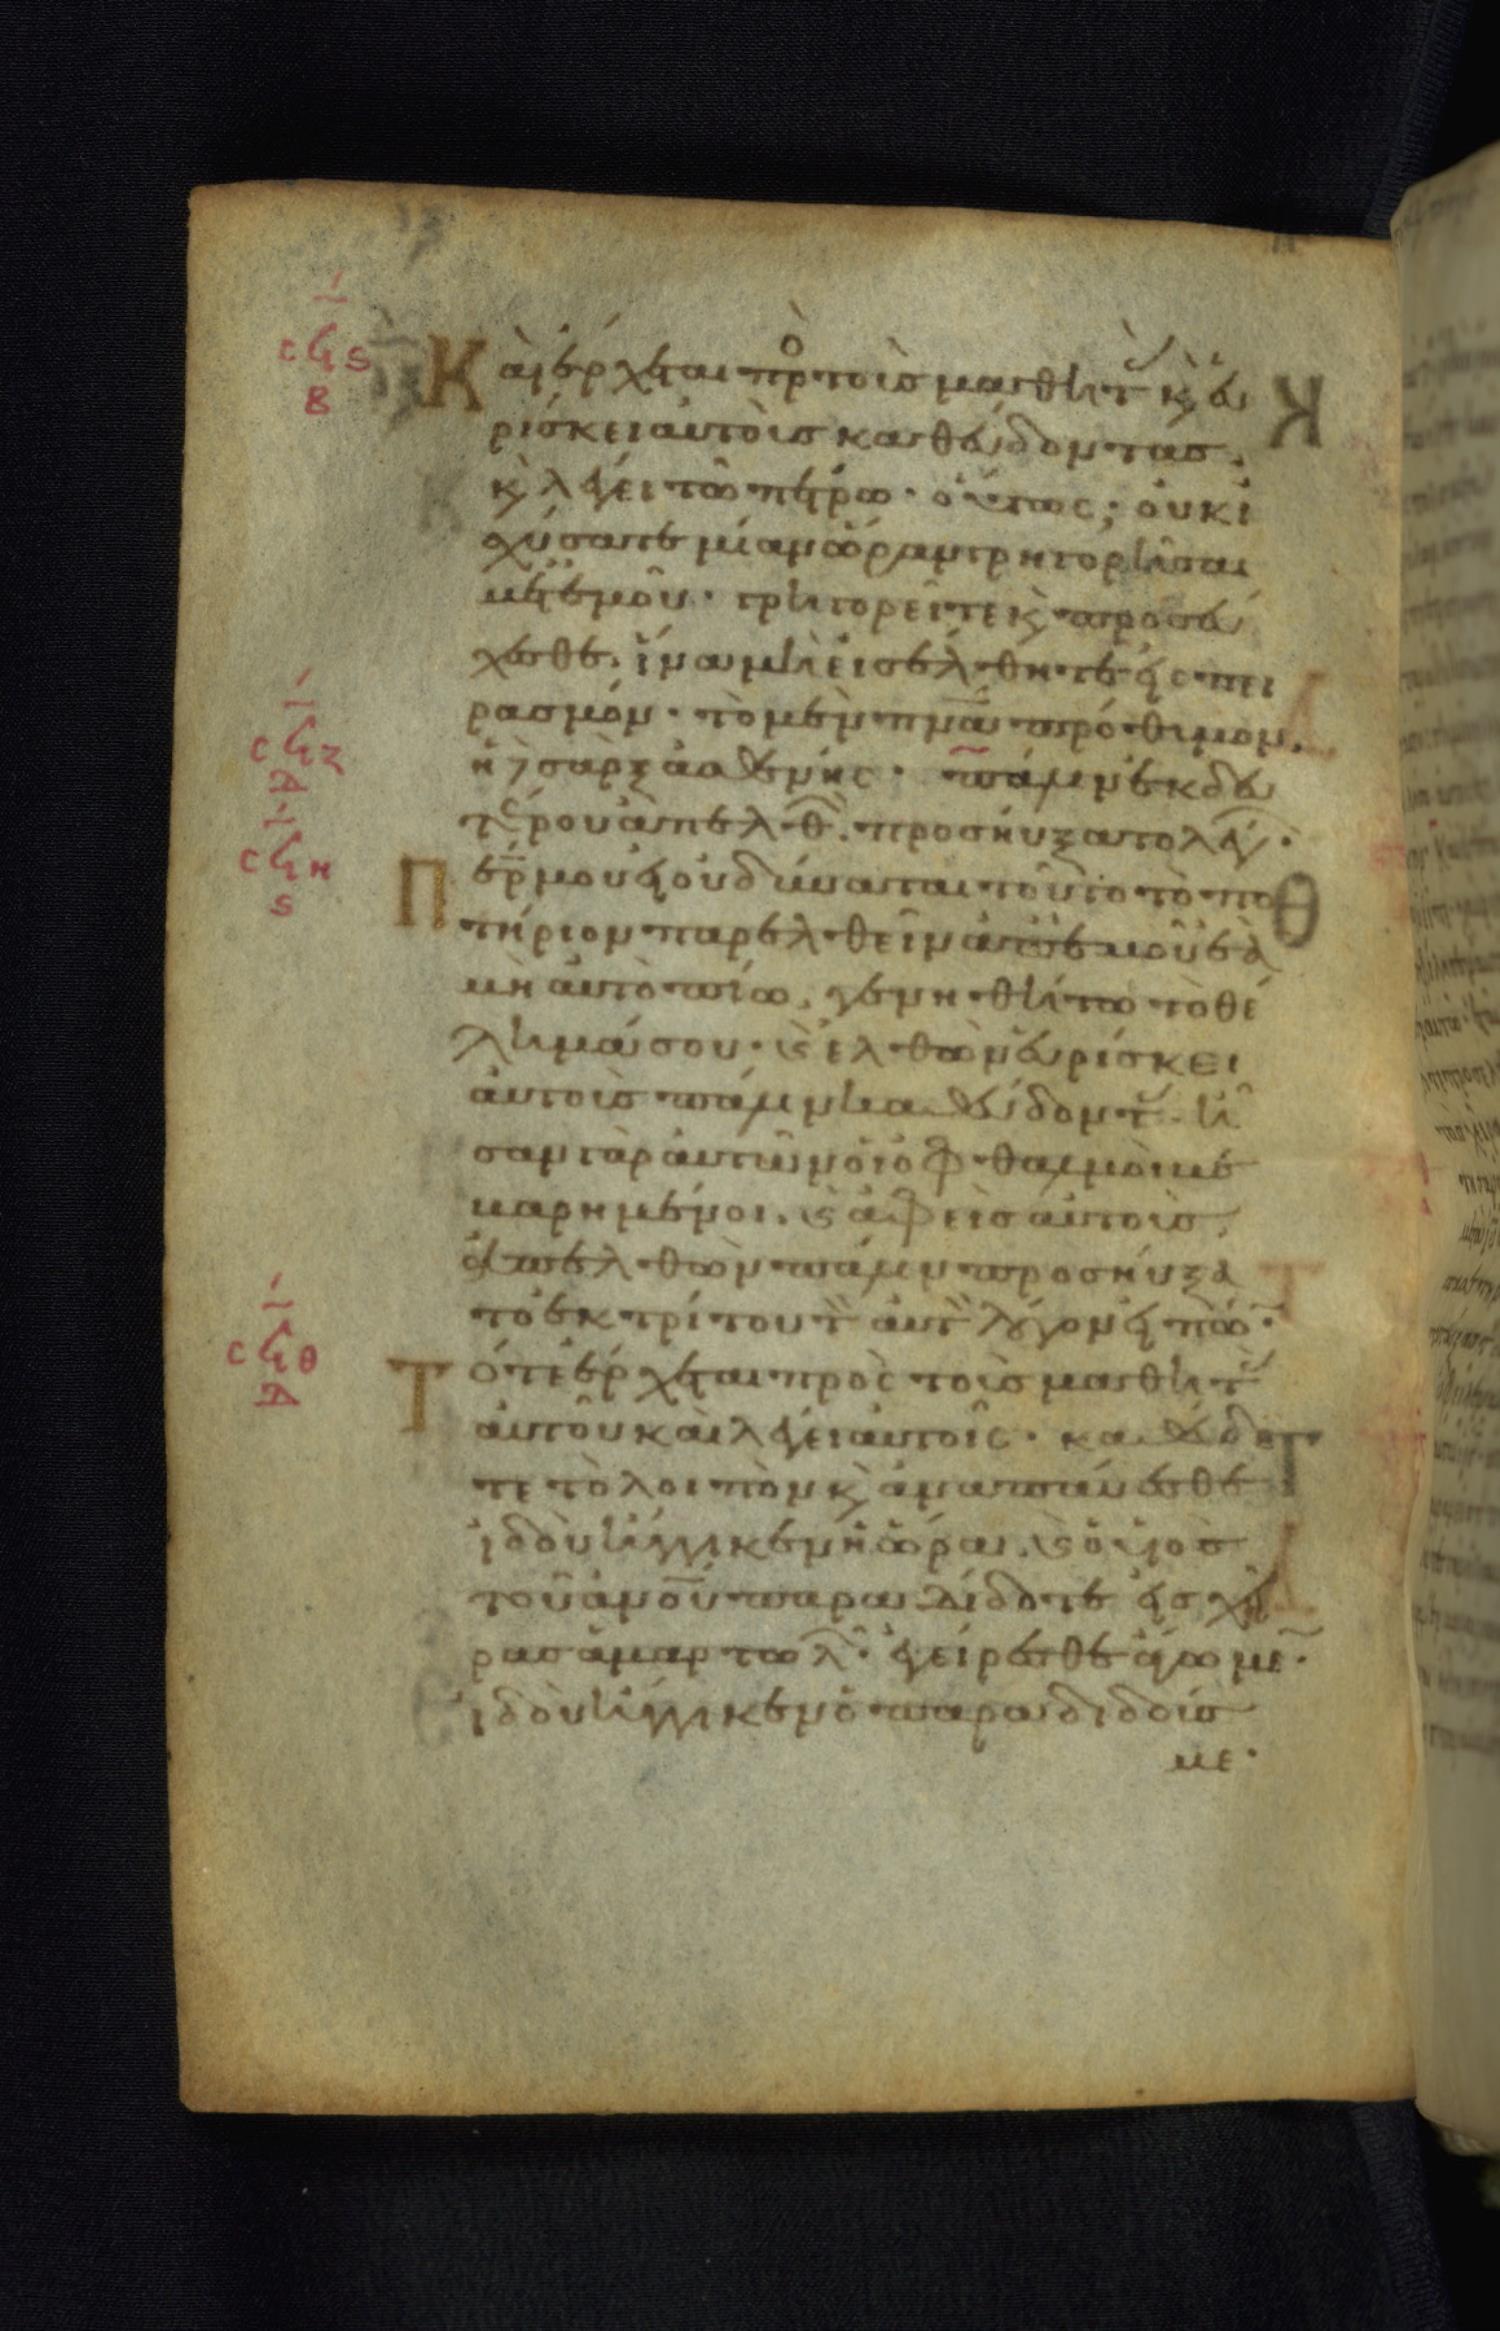 Κὰι ἔρχεται πρὸ τοὺσ μαθητ κ ἑυ
ρίσκει ἀυτοὺσ καθέυδοντασ.
κ λέγει τῶ πέτρω. ὁύτως; ὀυκ ἰ
χύσατε μίαν ὥραν γρηγορῆσαι
μετ ἐμοῦ. γρηγορεῖτε κ προσέυ
χεσθε. ἵνα μὴ ἐισέλθητε ἐις πει
ρασμόν. τὸ μὲν πνᾶ πρόθυμον.
ἡ δὲ σὰρξ ἀσθενής. πάλιν ἐκ δευ
τέρου ἀπελθ. προσηύξατο λέγ.
Περ μου ἐι ὀυ δύναται τοῦτο τὸ πο
τήριον παρελθεῖν ἀπ ἐμοῦ ἐὰ
μὴ ἀυτὸ πίω. γενηθήτω τὸ θέ
λημά σου. κ ἐλθὼν ἑυρίσκει
ἀυτοὺσ πάλιν καθέυδοντ. ἦ
σαν γὰρ ἀυτῶν ὁι ὀφθαλμὸι βε
βαρημένοι. κ ἀφεὶσ ἀυτοὺσ.
ἀπελθὼν πάλιν προσηύξα
το ἐκ τρίτου τ ἀυτ λόγον ἐιπώ.
Τότε ἔρχεται πρὸς τοὺσ μαθητ
ἀυτοῦ κὰι λέγει ἀυτοῖς. καθέυδε
τε τὸ λοιπὸν κ ἀναπάυεσθε
ἰδοὺ ἤγγικεν ἡ ὥρα. κ ὁ υἱὸσ
τοῦ ἀνου παραδίδοτε ἐισ χεῖ
ρασ ἁμαρτωλ. ἐγείρεσθε ἄγωμε.
ἰδοὺ ἤγγικεν ὁ παραδιδούσ
με.